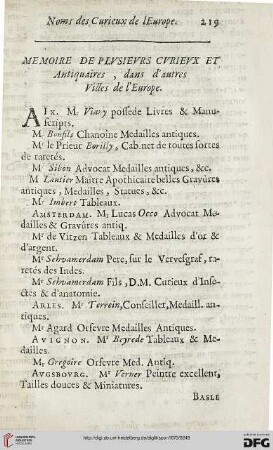 Noms des Curieux de l'Europe. 219
MEMOIRE DE PLVSIEVRS CVRIEVX ET
Antiquaires, dans d'autres
Villes de l'Europe.
AIX. Mr Viany possede Livres & Manu-
scripts.
Mr Bonfils Chanoine Medailles antiques.
Mr le Prieur Borilly, Cabinet de toutes sortes
de raretés.
Mr Sibon Advocat Medailles antiques, &c.
M Lantier Maitre Apothicaire belles Gravûres
antiques, Medailles, Statues, &c.
Mr Imbert Tableaux.
AMSTERDAM. Mr Lucas Occo Advocat Me-
dailles & Gravûres antiq.
Mr de Vitzen Tableaux & Medailles d'or &
d'argent.
Mr Schvamerdam Pere, sur le Vervesgraf, ra-
retés des Indes.
Mr Schvamerdam Fils, D.M. Curieux d'Inse-
ctes & d'anatomie.
ARLES. Mr Terroin, Conseiller, Medaill. an-
tiques.
Mr Agard Orfevre Medailles Antiques.
AVIGNON. Mr Beyrede Tableaux & Me-
dailles.
Mr Gregoire Orfevre Med. Antiq.
AVGSBOVRG. Mr Verner Peintre excellent,
Tailles douces & Miniatures.
BASLE
UNIVERSITÄTS-
BIBLIOTHEK
HEIDELBERG
Gefördert durch
DFG